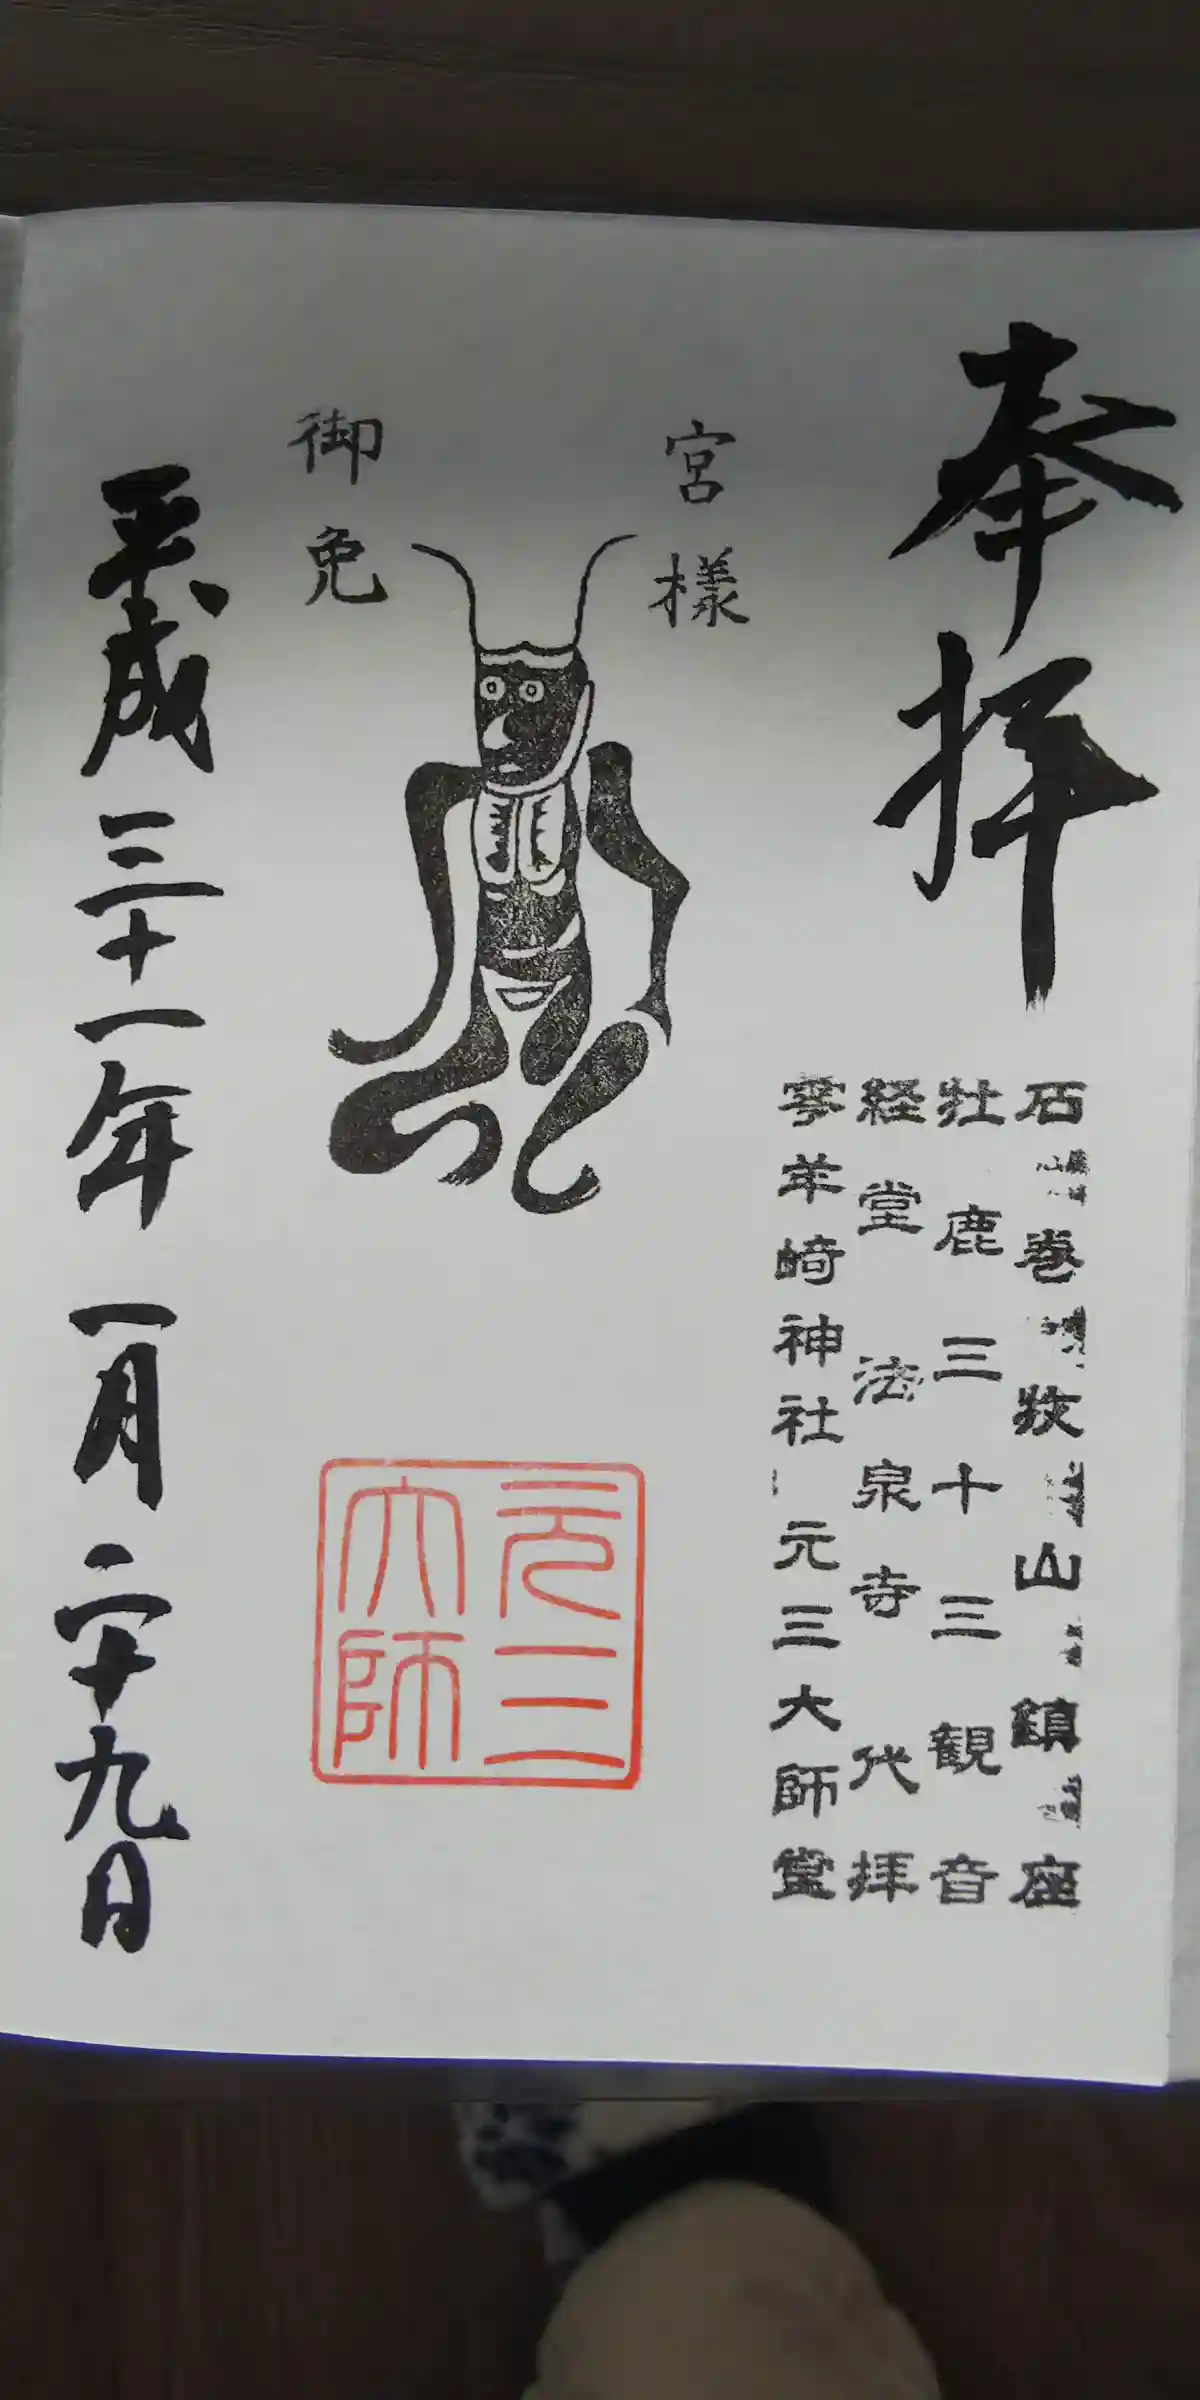 奉拝
石巻牧山鎮座
牡鹿三十三観音
経堂法泉寺代拝
零羊崎神社元三大師堂
宮様
御免
元三
大師
平成三十一年一月二十九日